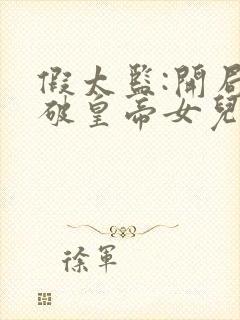 假太監:開局
破皇帝女兒
徐軍